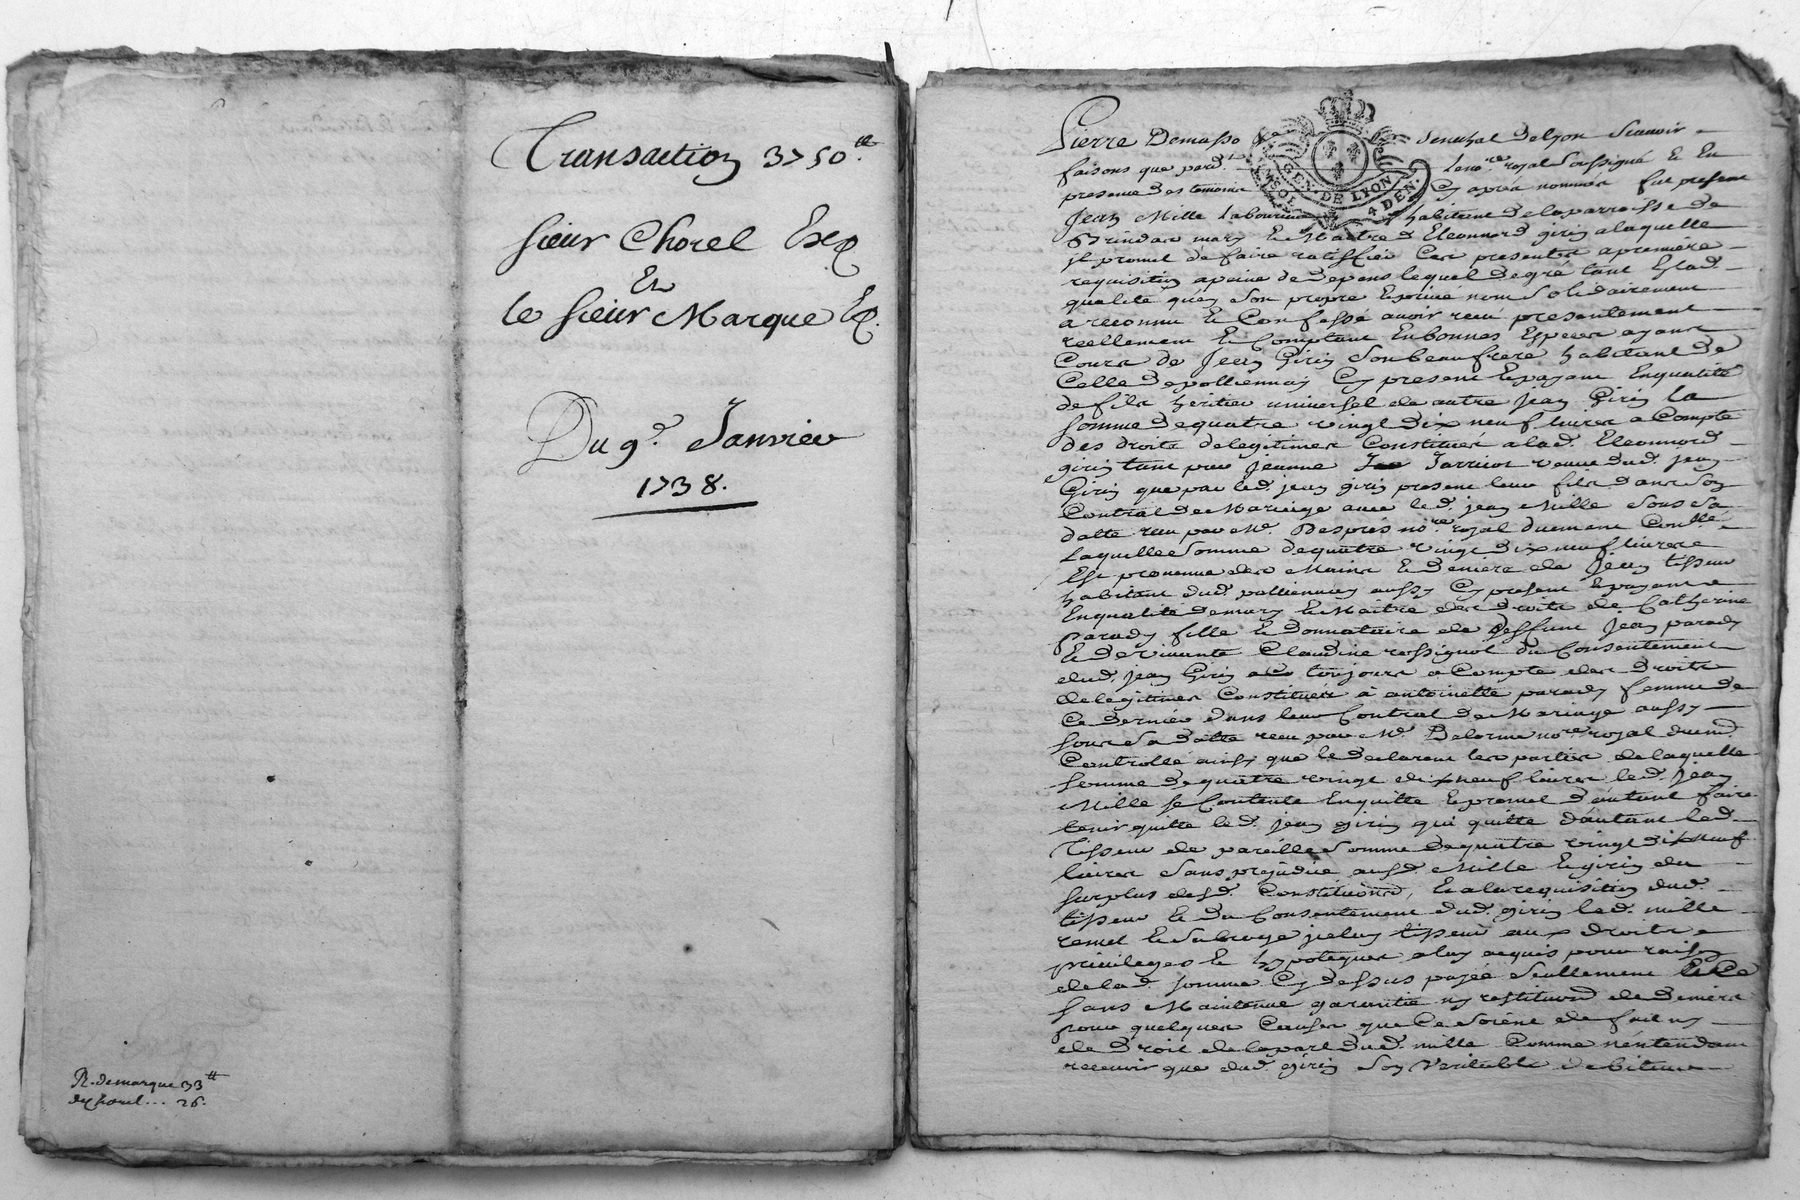 Transaction 3750 tt.
sieur Chorel Exp
Et
le sieur Marque Ex.
Du 9e. Janvier
1738.
R. demarque 33 tt
de chorel ... 26.
Pierre Demasso senechal de lyon scavoir
faisons que pard.t leno.re royal soussigné & En
presence des temoins Cy apres nommés fut present
GEN. DE LYON. 4 DEN.
Jean Mille laboureur habitent de la parroisse de
Brindas mary & Maitre d Eleonnord girin a laquelle
jl promet de faire ratiffier Ces presentes a premiere
requisition apeine de depens lequel degré tant Esd.
qualité qu'en son propre & privé nom solidairement
a reconnu & Confessé avoir receu presentement
reellement & Comptant En bonnes Especes ayant
Cours de Jean Girin son beaufrere habitant de
Celle de pollionnay Cy present & payant En qualité
de fils heritier universel de autre jean Girin la
somme de quatre vingt dix neuf livres a Compte
des droits de legitimes Constitués a lad. Eleonnord
girin tant par jeanne Jarricot veuve dud. jean
Girin que par led. jean girin present leur fils dans son
Contrat de Mariage avec led. jean Mille sous sa
datte receu par Me. Desprès no.re royal duement Con.llé
Laquelle somme de quatre vingt dix neuf livres
Est provenue des Mains & deniers de Jean tisseur
habitant dud. pollionnay aussy Cy present & payant
En qualité de mary & Maitre des droits de Catherine
Parady fille & donnataire de deffunt Jean parady
& de vivante Claudine rossignol du Consentement
dud. jean Girin a Co toujours a Compte des droits
de legitimes Constitués à antoinette parady femme de
Ce dernier dans leur Contrat de Mariage aussy
sous sa datte receu par Me. Delorme no.re royal duemt.
Controllé ainsy que le declarent les parties de laquelle
somme de quatre vingt dix neuf livres led. Jean
Mille se Contente En quitte & promet d'autant faire
tenir quitte led. jean girin qui quitte d'autant led.
Tisseur de pareille somme de quatre vingt dix neuf
livres sans prejudice ausd. Mille & girin du
surplus desd. Constitutions, & a la requisition dud.
tisseur & du Consentement dud. girin led. mille
remet & subroge jceluy tisseur aux droits
privileges & hypoteques a luy acquis pour raison
de lad. somme Cy dessus payée seullement & Ce
sans Maintenue garantie ny restitution de deniers
pour quelques Causes que Ce soient de fait ny
de droit de la part dud. mille Comme n'entendant
recevoir que dud. girin son veritable debiteur